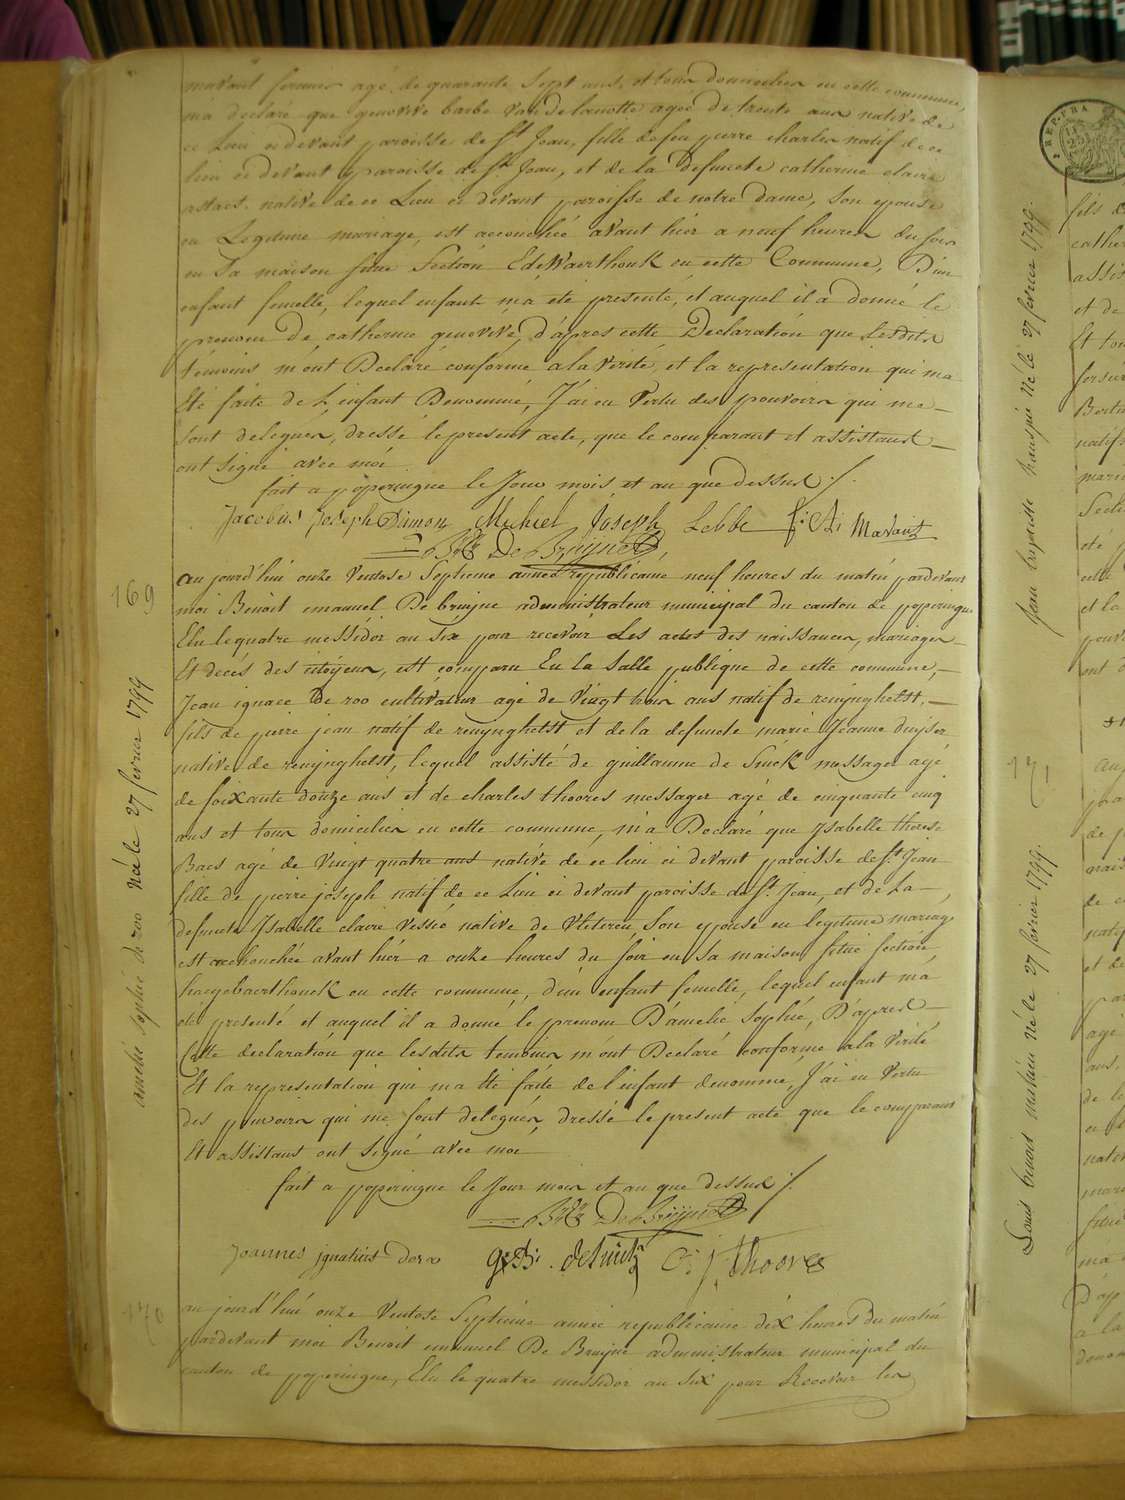 mavaut fermier agé de quarante sept ans, et tous domiciliés en cette commune,
m'a declaré que genovive barbe Vandelanotte agée de trente ans native de
ce Lieu ci devant paroisse de St Jean, fille de feu pierre charles natif de ce
lieu ci devant paroisse de St Jean, et de la defuncte catherine claire
native de ce Lieu ci devant paroisse de notre dame, son epouse
en Legitime mariage, est accouchée avant hiér a neuf heures du soir
en sa maison situe Section EdeWaerthouk en cette Commune, D'un
enfant femelle, lequel enfant m'a eté presenté, et auquel il a donné le
prenom de catherine genovive, d'apres cette Declaration que lesdits
témoins m'ont Declaré conforme a la verité, et la representation qui m'a
Eté faite de L'enfant Denommé, J'ai en Vertu des pouvoirs qui me
sont delegués, dressé le present acte, que le comparant et assistans
ont signé avec moi
fait a poperingue le Jour mois et an que dessus /.
Jacobus Joseph Damon Michiel Joseph Lebbe Mavaut
De Bruijne
169
au jourd'hui onze Ventose Septieme année republicaine neuf heures du matin pardevant
moi Benoit emanuel De bruijne administrateur municipal du canton de poperingue
Elu le quatre messidor an six pour recevoir Les actes des naissances, mariages
Et decés des citoÿens, est comparu En la Salle publique de cette commune,
Jean ignace De roo cultivateur agé de Vingt trois ans natif de renijnghelst,
fils de pierre jean natif de renijnghelst et de la defuncte marie Jeanne Duijser
native de renijnghelst, lequel assisté de guillaume de Snick messager agé
de soixante douze ans et de charles thoores messager agé de cinquante cinq
ans et tous domiciliés en cette commune, m'a Declaré que Ysabelle therese
Baes agé de Vingt quatre ans native de ce lieu ci devant paroisse de St Jean
fille de pierre joseph natif de ce Lieu ci devant paroisse de St Jean, et de La
defuncte Ysabelle claire native de Vleteren, son epouse en legitime mariage
est acchouchée avant hiér a onze heures du soir en sa maison situé section
haegebaerthouck en cette commune, d'un enfant femelle, lequel enfant m'a
eté presenté et auquel il a donné le prenom D'amelie Sophie, D'apres
Cette declaration que lesdits temoins m'ont Declaré conforme a la Verité
Et la representation qui m'a Eté faite de l'enfant denommé, J'ai en Vertu
des pouvoirs qui me sont delegués, dressé le present acte que le comparant
Et assistans ont signé avec moi
fait a poperingue le Jour mois et an que dessus /.
De Bruijne
Joannes ignatius dero thoores
amelie sophie de roo née le 27 fevrier 1799
170
au jourd'hui onze Ventose Septieme année republicaine dix heures Du matin
pardevant moi Benoit emanuel De Bruijne administrateur municipal du
canton de poperingue, Elu le quatre messidor an six pour Recevoir les
REP. FRA
née le 27 fevrier 1799.
Louis benoit mahieu né le 27 fevrier 1799.
171
fils d
cather
assis
et de
Et tou
natif
mari
Secti
eté p
cette
et la
pouv
ont
au